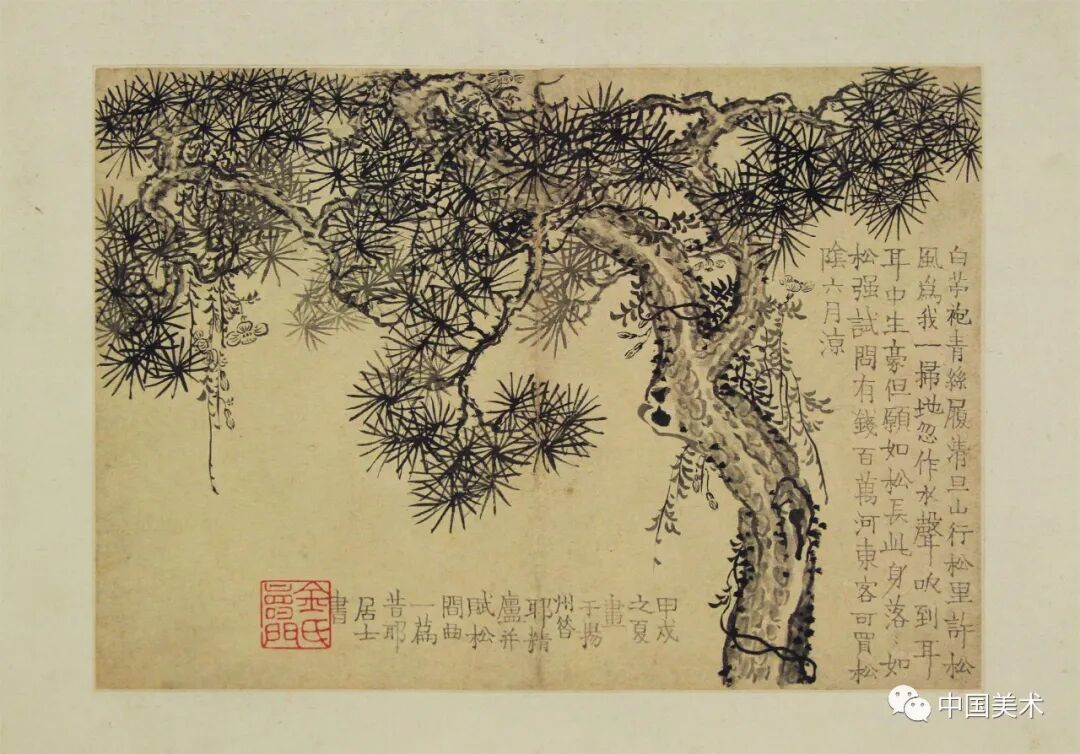 白苧袍青絲履清旦山行松里許松
風爲我一掃地忽作水聲吹到耳
耳中生豪但願如松長此身落落如
松强試問有錢百萬河東客可買松
陰六月涼
甲戌
之夏
畫
于揚
州昝
耶精
廬并
賦松
間曲
一篇
昔耶
居士
書
金氏
壽門
中国美术